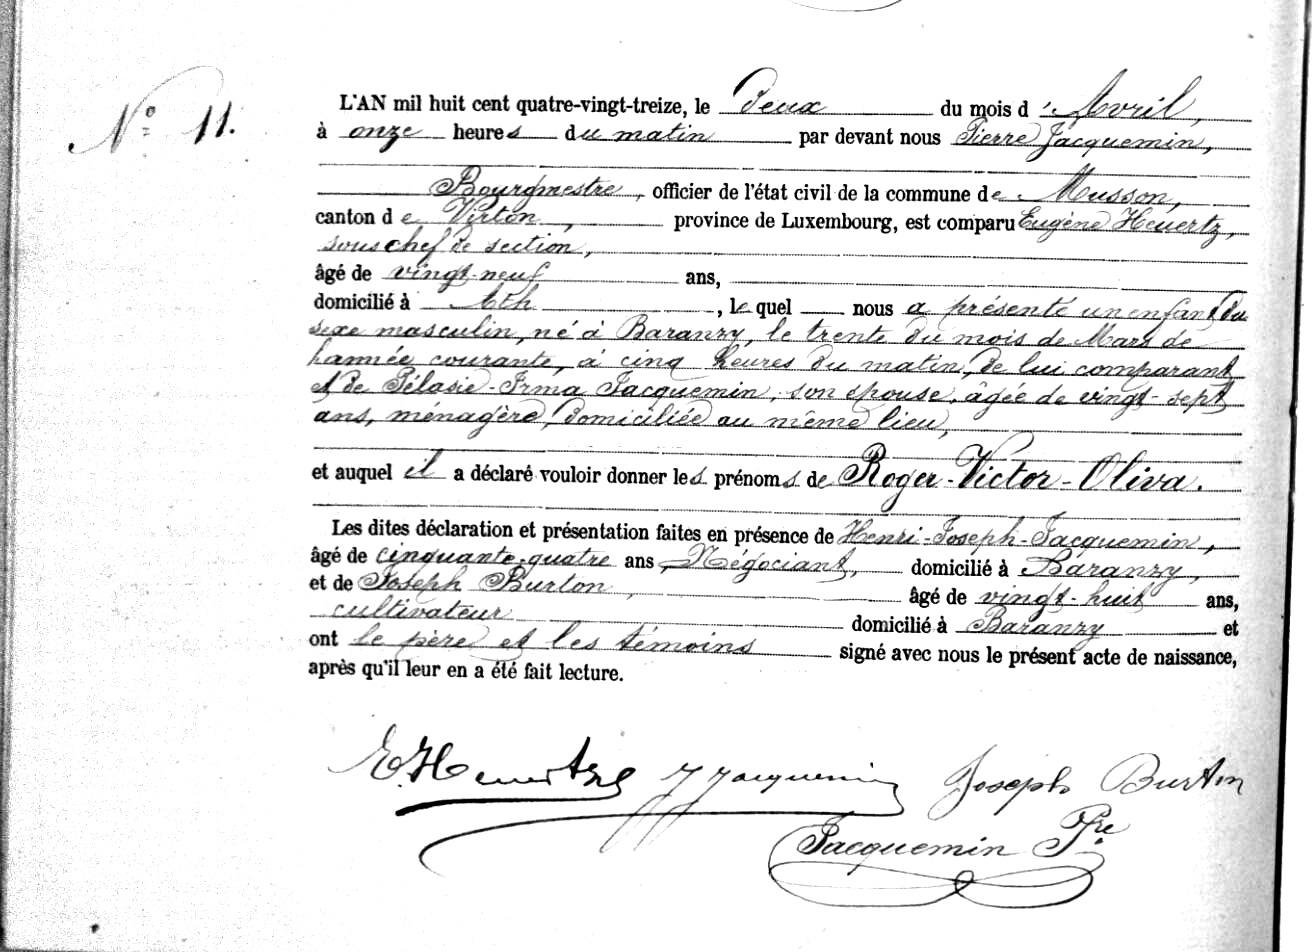 N° 11.
L'AN mil huit cent quatre-vingt-treize, le Deux du mois d'Avril,
à onze heures du matin par devant nous Pierre Jacquemin,
Bourgmestre, officier de l'état civil de la commune de Musson,
canton de Virton, province de Luxembourg, est comparu Eugène Heuertz,
sous chef de section,
âgé de vingt-neuf ans,
domicilié à Ath, le quel nous a présenté un enfant du
sexe masculin, né à Baranzy, le trente du mois de Mars de
l'année courante, à cinq heures du matin, de lui comparant
et de Pélasie-Irma Jacquemin, son épouse, âgée de vingt-sept
ans, ménagère, domiciliée au même lieu,
et auquel il a déclaré vouloir donner les prénoms de Roger-Victor-Oliva.
Les dites déclaration et présentation faites en présence de Henri-Joseph-Jacquemin,
âgé de cinquante-quatre ans, Négociant, domicilié à Baranzy,
et de Joseph Burton, âgé de vingt-huit ans,
cultivateur domicilié à Baranzy et
ont le père et les témoins signé avec nous le présent acte de naissance,
après qu'il leur en a été fait lecture.
E. Heuertz Jacquemin Joseph Burton
Jacquemin Pre